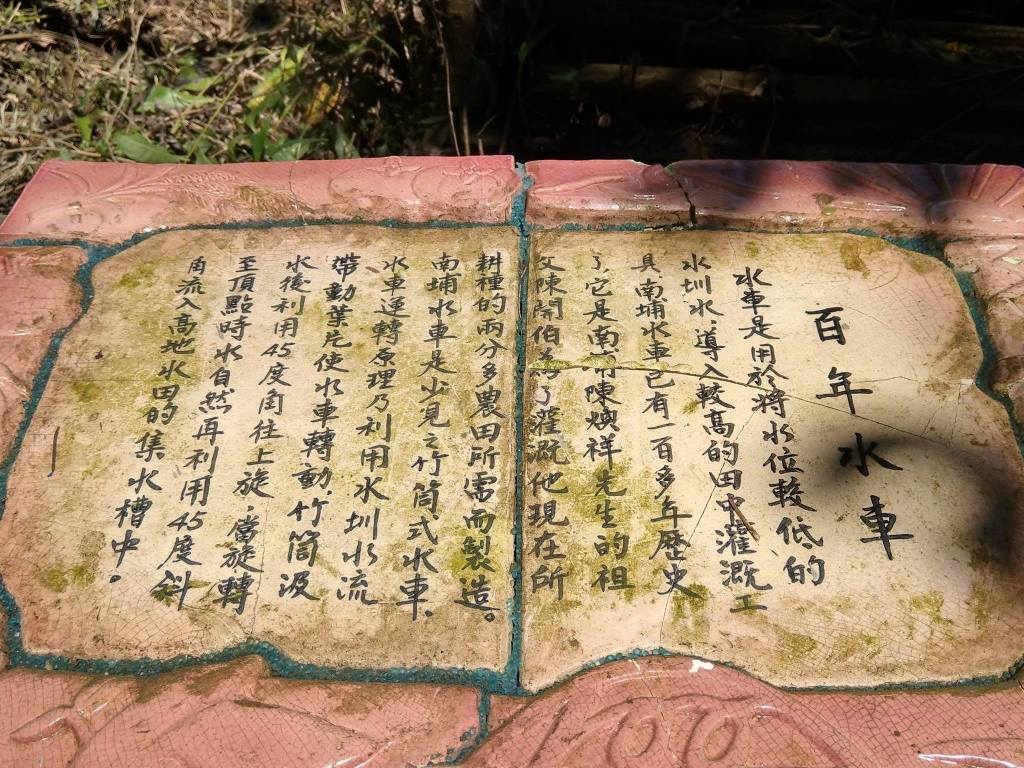 百年水車
水車是用於將水位較低的
水圳水導入較高的田中灌溉工
具,南埔水車已有一百多年歷史
了,它是南埔陳煥祥先生的祖
父陳開伯為了灌溉他現在所
耕種的兩分多農田所需而製造。
南埔水車是少見之竹筒式水車、
水車運轉原理乃利用水圳水流
帶動葉片使水車轉動,竹筒汲
水後利用45度角往上旋,當旋轉
至頂點時水自然再利用45度斜
角流入高地水田的集水槽中。